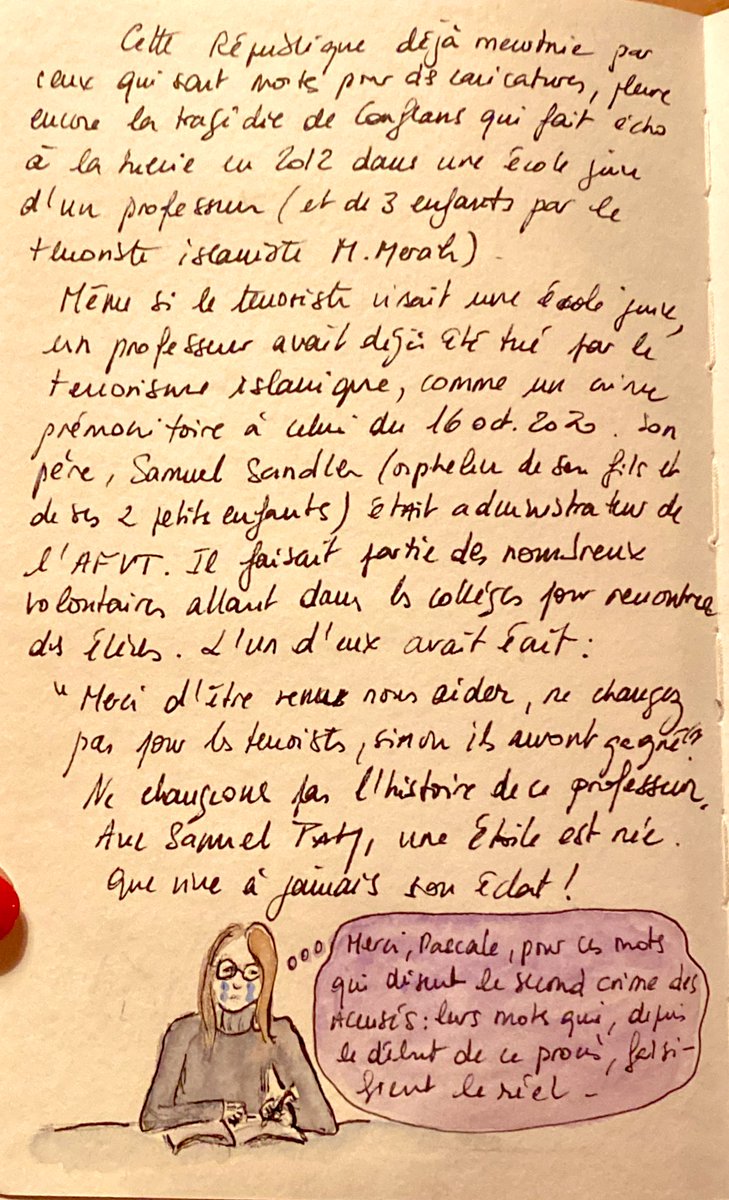 Cette République déjà meurtrie par
ceux qui sont morts pour des caricatures, pleure
encore la tragédie de Conflans qui fait écho
à la tuerie en 2012 dans une école juive
d'un professeur (et de 3 enfants par le
terroriste islamiste M. Merah).
Même si le terroriste visait une école juive,
un professeur avait déjà été tué par le
terrorisme islamique, comme un crime
prémonitoire à celui du 16 oct. 2020. Son
père, Samuel Sandler (orphelin de son fils et
de ses 2 petits enfants) était administrateur de
l'AFVT. Il faisait partie des nombreux
volontaires allant dans les collèges pour rencontrer
des élèves. L'un d'eux avait écrit :
"Merci d'être venus nous aider, ne changez
pas pour les terroristes, sinon ils auront gagné".
Ne changeons pas l'histoire de ce professeur.
Avec Samuel Paty, une Étoile est née.
Que vive à jamais son éclat !
Merci, Pascale, pour ces mots
qui disent le second crime des
Accusés : leurs mots qui, depuis
le début de ce procès, falsi-
fient le réel -